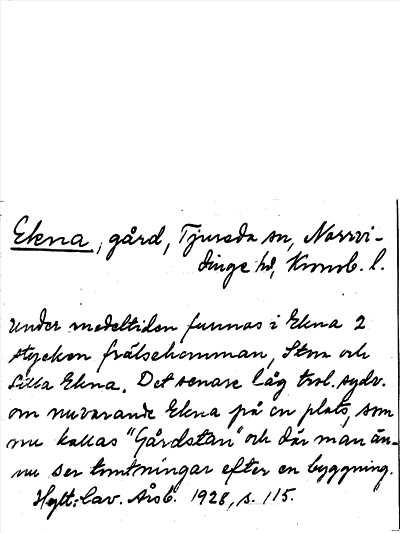 Ekna, gård, Tjureda sn, Norrvi-
dinge hd, Kronob. l.
Under medeltiden funnos i Ekna 2
stycken frälsehemman, Stora och
Lilla Ekna. Det senare låg trol. sydv.
om nuvarande Ekna på en plats, som
nu kallas "Gårdstan" och där man än-
nu ser tomtningar efter en byggning.
Hylt:Cav. Årsb. 1928, s. 115.